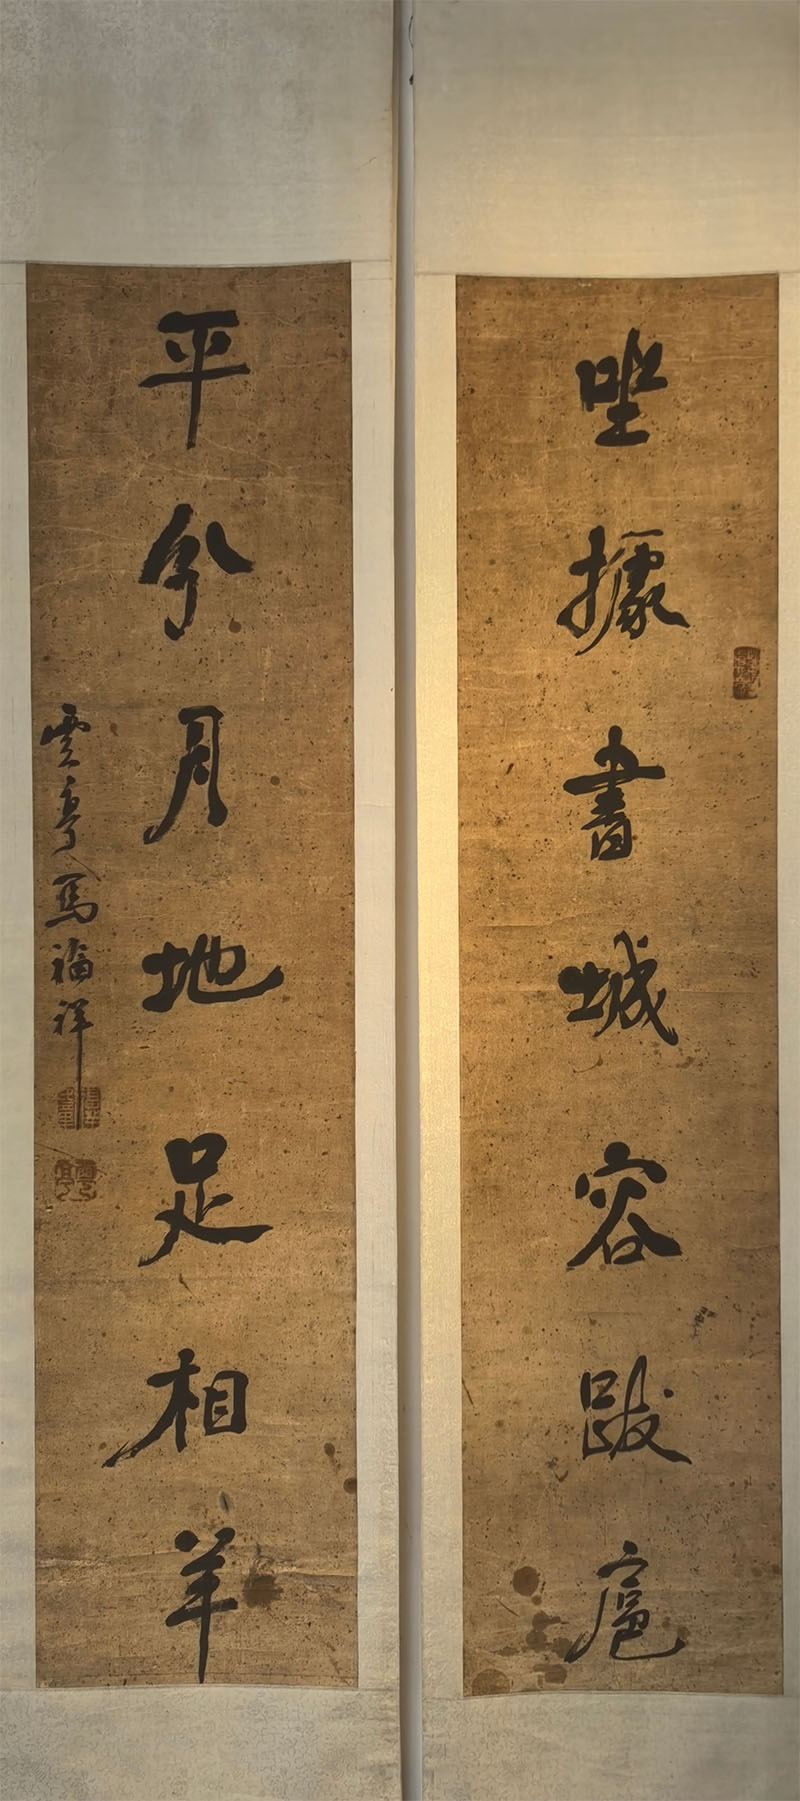 坐據書城容跋扈
平分月地足相羊
雲亭馬福祥